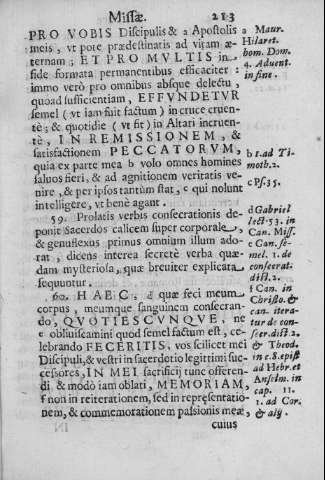 Missæ. 213
PRO VOBIS Discipulis & a Apostolis
meis, vt pote prædestinatis ad vitam æ-
ternam; ET PRO MVLTIS in
fide formata permanentibus efficaciter:
immo verò pro omnibus absque delectu,
quoad sufficientiam, EFFVNDETVR
semel (vt iam fuit factum) in cruce cruen-
tè; & quotidie (vt fit) in Altari incruen-
tè, IN REMISSIONEM, &
satisfactionem PECCATORVM,
quia ex parte mea b volo omnes homines
saluos fieri, & ad agnitionem veritatis ve-
nire, & per ipsos tantùm stat, c qui nolunt
intelligere, vt benè agant.
59. Prolatis verbis consecrationis de-
ponit Sacerdos calicem super corporale,
& genuflexus primus omnium illum ado-
rat, dicens interea secretè verba quæ-
dam mysteriosa, quæ breuiter explicata
sequuntur.
60. HAEC, d quæ feci meum
corpus, meumque sanguinem consecran-
do, QVOTIESCVNQVE, ne
e obliuiscamini quod semel factum est, ce-
lebrando FECERITIS, vos scilicet mei
Discipuli, & vestri in sacerdotio legittimi suc-
cessores, IN MEI sacrificij tunc offeren-
di, & modò iam oblati, MEMORIAM,
f non in reiterationem, sed in repræsentatio-
nem, & commemorationem passionis meæ,
cuius
a Maur.
Hilaret.
hom. Dom.
4. Aduent.
in fine.
b 1. ad Ti-
moth. 2.
c Ps. 35.
d Gabriel
lect. 53. in
Can. Miss.
e Can. se-
mel. 1. de
consecrat.
dist. 2.
f Can. in
Christo. &
can. itera-
tur de con-
ser. dist. 2.
& Theod.
in c. 8. epist
ad Hebr. et
Anselm. in
cap. 11.
1. ad Cor.
& alij.